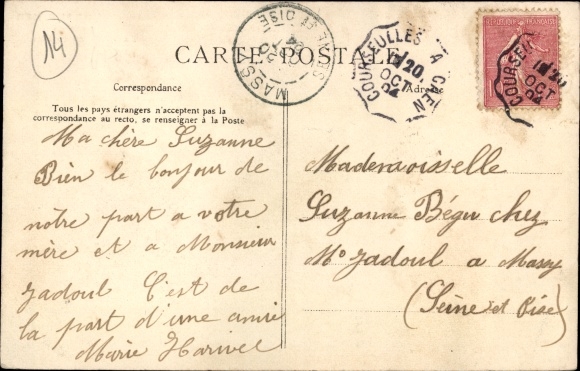 14
CARTE POSTALE
MASSY
SEINE ET OISE
20
OCT
04
COURSEULLES A CAEN
20
OCT
04
REPUBLIQUE FRANÇAISE
COURSEUL
20
OCT
04
Correspondance
Adresse
Tous les pays étrangers n'acceptent pas la
correspondance au recto, se renseigner à la Poste
Ma chère Suzanne
Bien le bonjour de
notre part a votre
mère et a Monsieur
Jadoul C'est de
la part d'une amie
Marie Harivel
Mademoisselle
Suzanne Bégu chez
Mr Jadoul a Massy
(Seine et Oise)